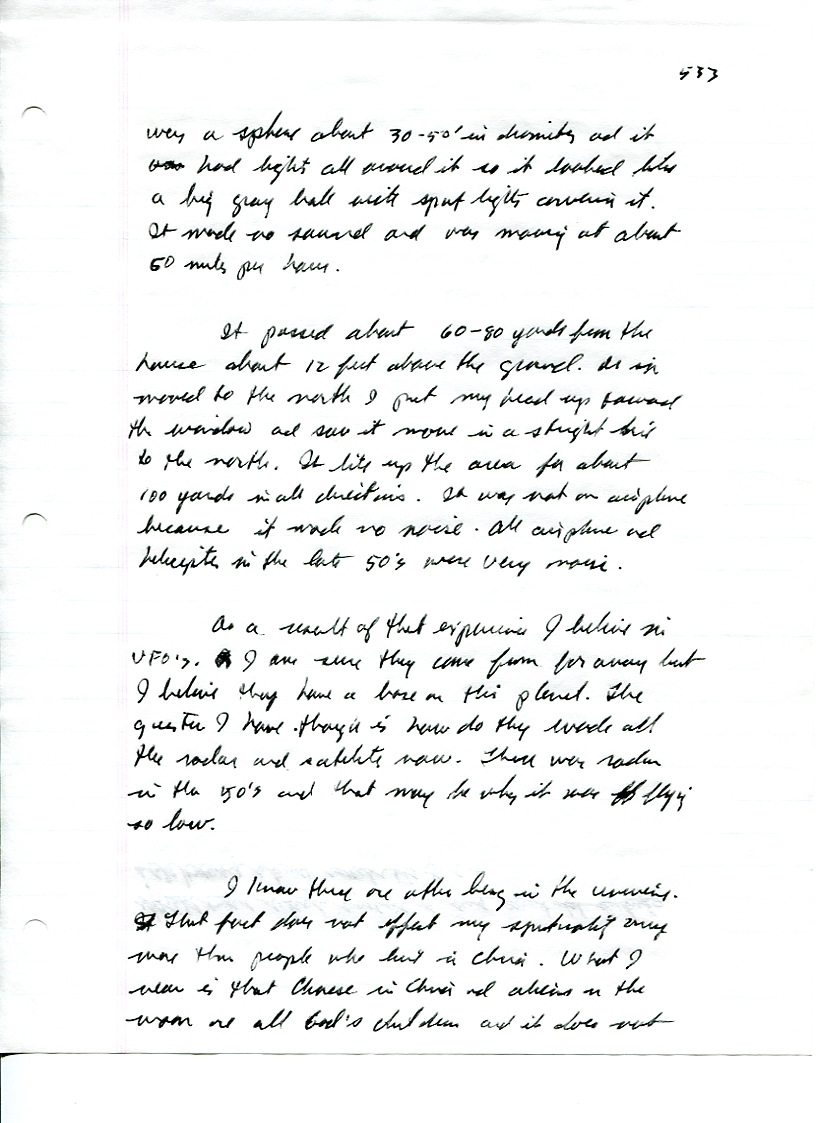 533
was a sphere about 30-50' in diamiter ad it
had light all around it so it looked like
a big gray ball with spot lights coverin it.
It made no sound and was moving at about
50 miles per hour.
It passed about 60-80 yards from the
house about 12 feet above the ground. As in
moved to the north I put my head up toward
the window ad saw it move in a straight line
to the north. It lite up the area for about
100 yards in all directions. It was not an airplane
because it made no noise. All airplane ad
helicopter in the late 50's were very noise.
As a result of that experience I believe in
UFO's. I am sure they come from far away but
I believe they have a base on this planet. The
I have though is how do they evade all
the radar and satelite now. There was radar
in the 50's and that may be why it was flyig
so low.
I know there are other being in the universe.
That fact does not effect my any
more than people who live in China. What I
mean is that Chinese in China ad aliens on the
moon are all God's children and it does not